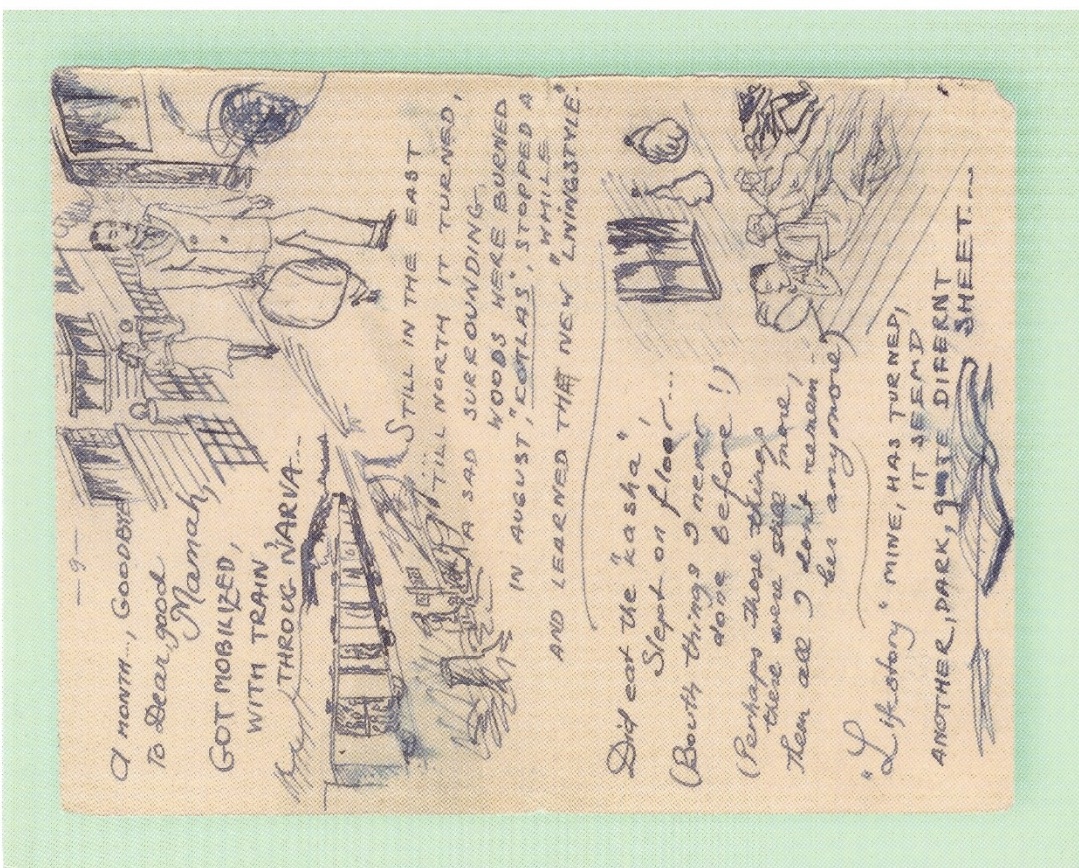 — 9 —
A MONTH..., GOODBYE
To Dear, good
Mamah,
GOT MOBILIZED,
WITH TRAIN,
THROUG NARVA...
STILL IN THE EAST
... TILL NORTH IT TURNED,
A SAD SURROUNDING,
WOODS HERE BURNED
IN AUGUST, "KOTLAS", STOPPED A
WHILE
AND LEARNED THAT NEW "LIVINGSTYLE".
Did eat the "kasha"
Slept on floor...
(Bouth things I never
done before!)
(Perhaps those things
there were still more,
Them all I don't remem-
ber anymore)
"Lifestory" MINE, HAS TURNED,
IT SEEMD
ANOTHER, DARK, QUITE DIFERNT
SHEET...